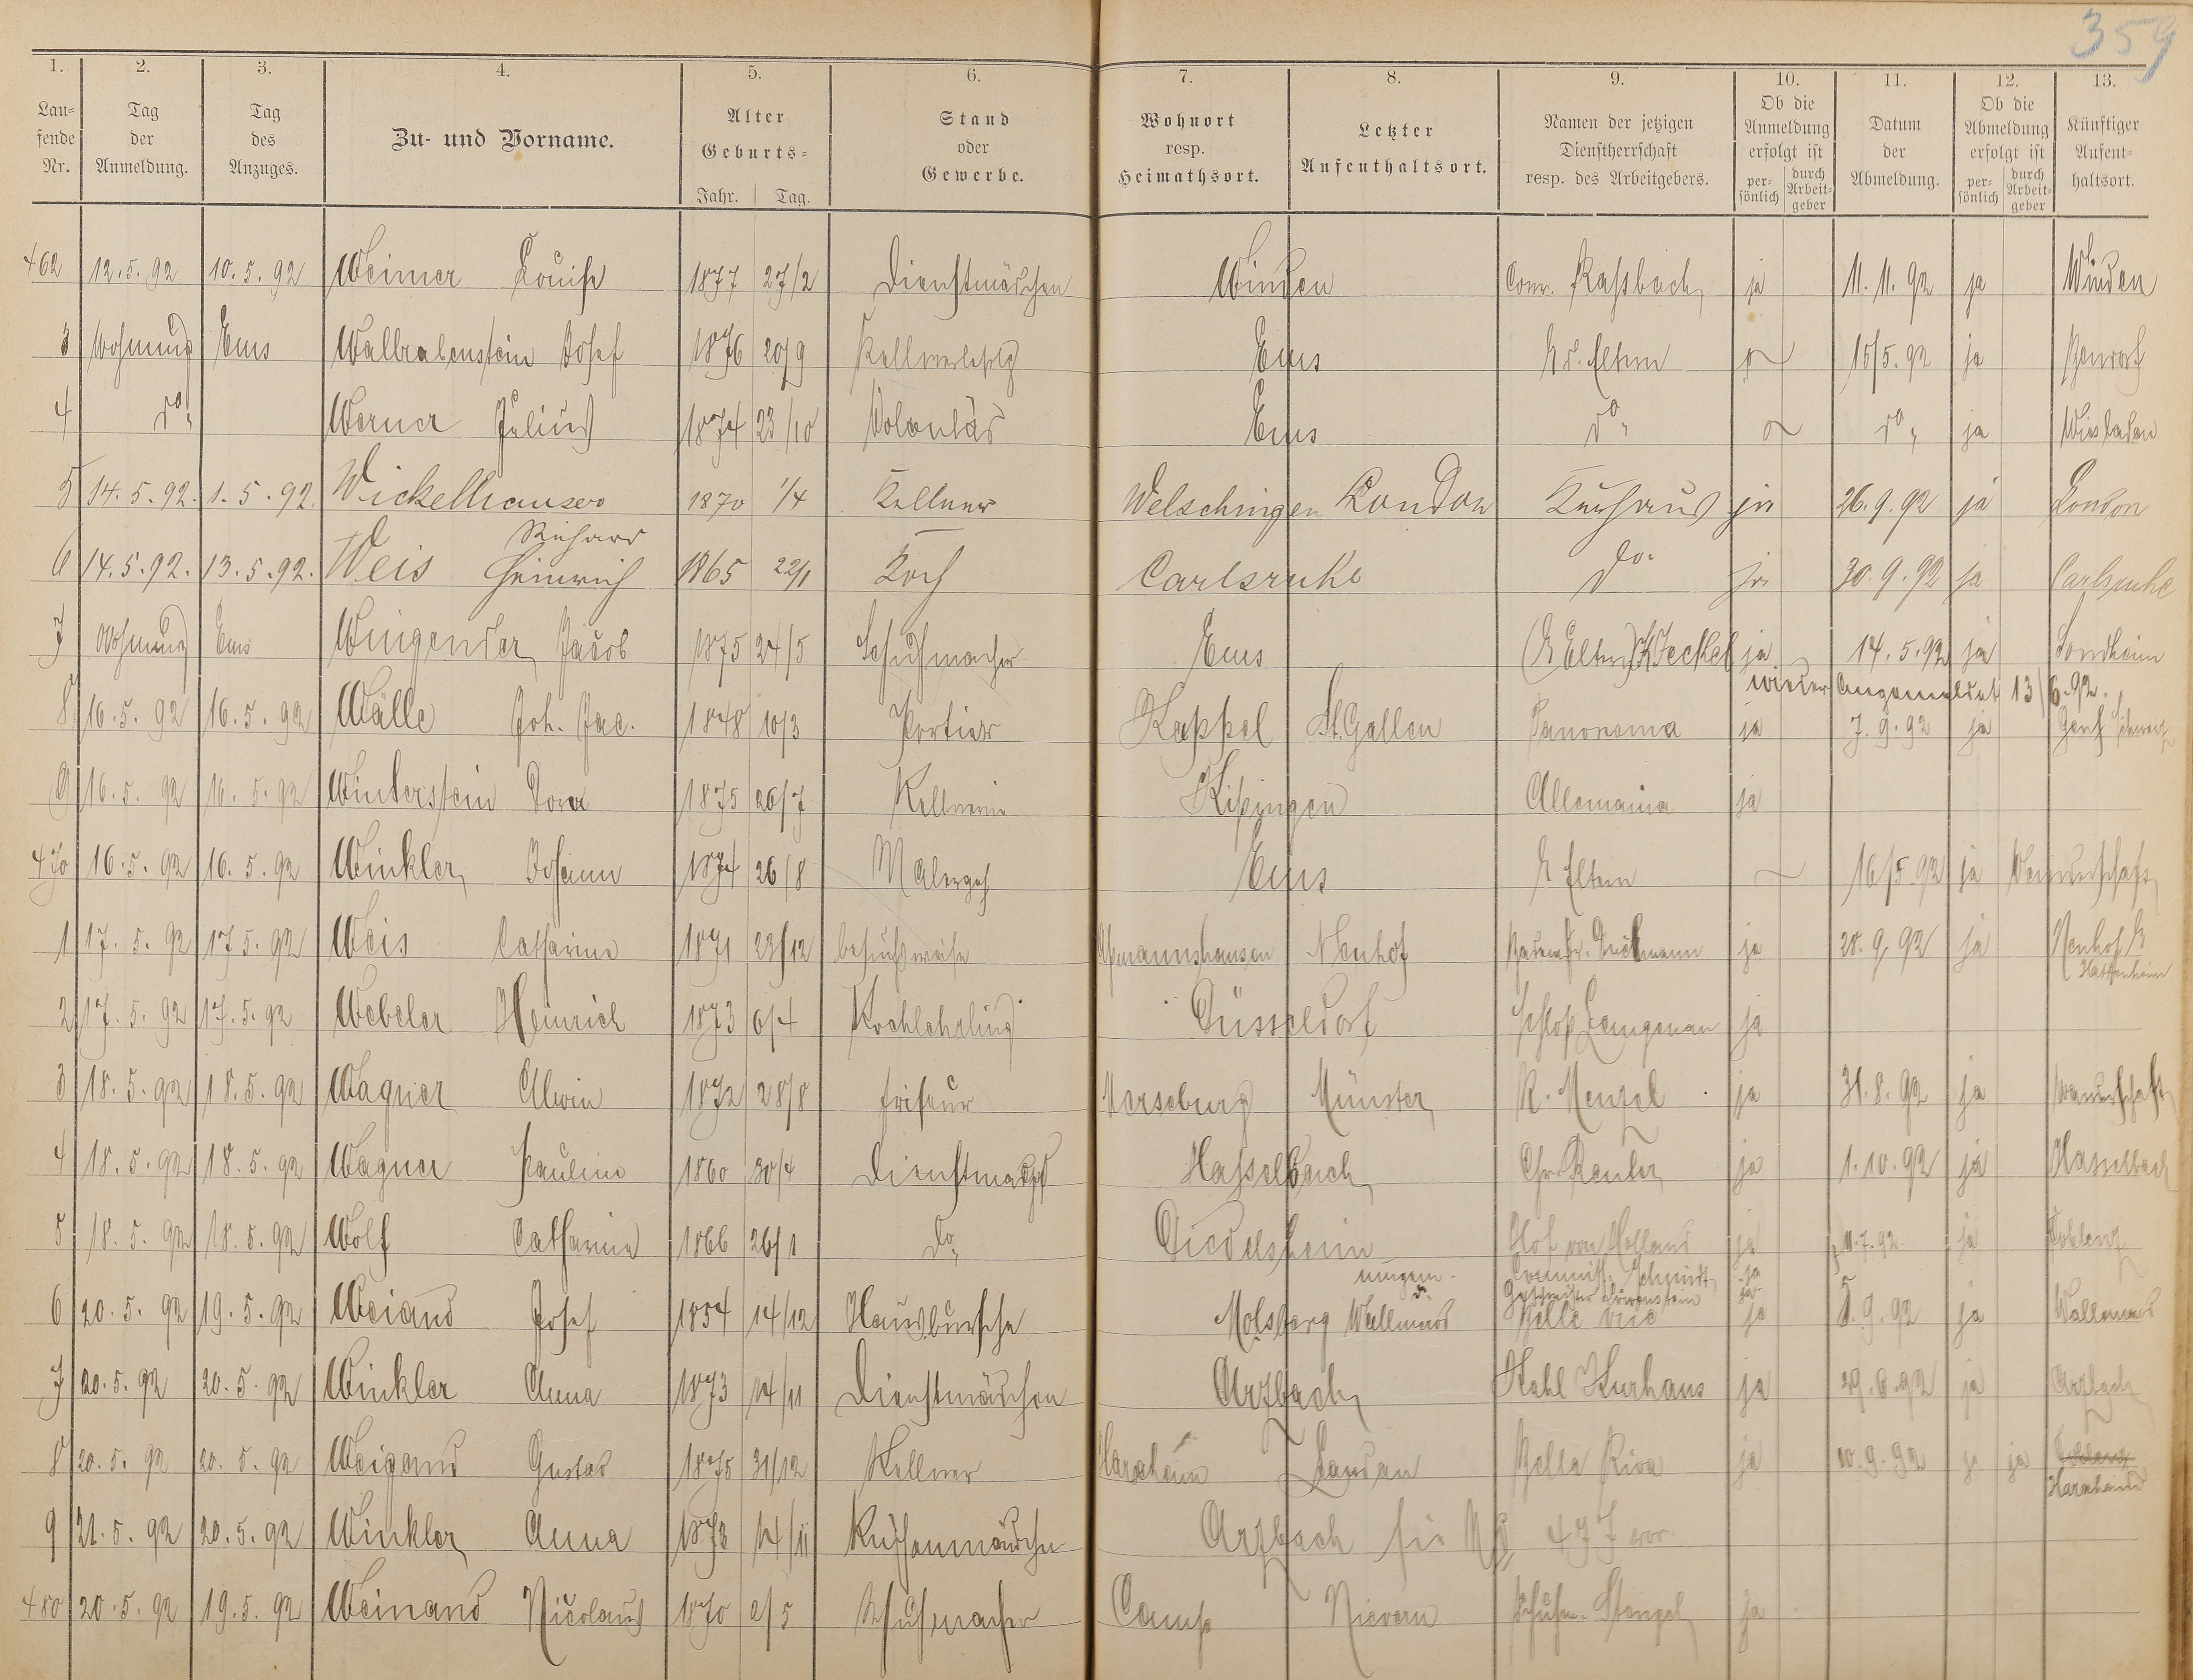 359
1. 2. 3. 4. 5. 6. 7. 8. 9. 10. 11. 12. 13.
Lau=fende Nr. Tag der Anmeldung. Tag des Anzuges. Zu- und Vorname. Alter Geburts= Jahr. Tag. Stand oder Gewerbe. Wohnort resp. Heimathsort. Letzter Aufenthaltsort. Namen der jetzigen Dienstherrschaft resp. des Arbeitgebers. Ob die Anmeldung erfolgt ist per=sönlich durch Arbeit=geber Datum der Abmeldung. Ob die Abmeldung erfolgt ist per=sönlich durch Arbeit=geber Künftiger Aufent=haltsort.
462 12.5.92 10.5.92 Weimer Louise 1877 27/2 Dienstmädchen Winden Conr. Kaßbach ja 11.11.92 ja Winden
3 Wohnung Ems Wallrabenstein Josef 1876 20/9 Ems Eltern 15/5.92 ja
4 do. Werner Julius 1874 23/10 Volontär Ems do. do. ja Wiesbaden
5 14.5.92. 1.5.92. Wickelhauser Richard 1870 1/4 Kellner Welschingen London Kurhaus ja 26.9.92 ja London
6 14.5.92. 13.5.92. Weis Heinrich 1865 22/1 Koch Carlsruhe do. ja 30.9.92 ja Carlsruhe
7 Wohnung Ems Wingender Jacob 1875 24/5 Schuhmacher Ems (Eltern) Jeckel ja 14.5.92 ja Sondheim
wieder Angemeldet 13/6.92.
8 16.5.92 16.5.92 Wälle Joh. Jac. 1848 10/3 Portier Kappel St. Gallen Panorama ja 7.9.92 ja Genf Schweiz
9 16.5.92 16.5.92 Winterstein Dora 1875 26/7 Kellnerin Kitzingen Allemania ja
470 16.5.92 16.5.92 Winkler Johann 1874 26/8 Malergeh Ems Eltern 16/5.92 ja Wanderschaft
1 17.5.92 17.5.92 Weis Catharine 1871 23/12 besuchsweise Aßmannshausen Neuhof ja 28.9.92 ja Neuhof b Hattenheim
2 17.5.92 17.5.92 Webeler Heinrich 1873 6/4 Kochlehrling Düsseldorf Schloß Langenau ja
3 18.5.92 18.5.92 Wagner Alwin 1872 28/8 Friseur Merseburg Münster K. Menzel ja 31.8.92 ja Wanderschaft
4 18.5.92 18.5.92 Wagner Pauline 1860 30/4 Dienstmagd Hasselbach Chr. Reuler ja 1.10.92 ja Hasselbach
5 18.5.92 18.5.92 Wolf Catharina 1866 26/1 do. Diedelsheim Hof von Holland ja 11.7.92 ja Coblenz
Schmidt ja
Geschwister Löwenstein ja
6 20.5.92 19.5.92 Weiand Josef 1854 14/12 Hausbursche Molsberg Wallmerod Belle vue ja 5.9.92 ja Wallmerod
7 20.5.92 20.5.92 Winkler Anna 1873 14/11 Dienstmädchen Arzbach Stahl Kurhaus ja 29.6.92 ja Arzbach
8 20.5.92 20.5.92 Weigand Gustav 1875 31/12 Kellner Harxheim Landau Bella Riva ja 10.9.92 ja ja Coblenz
Harxheim
9 21.5.92 20.5.92 Winkler Anna 1873 14/11 Küchenmädchen Arzbach sie No 477 vor.
480 20.5.92 19.5.92 Weinand Nicolaus 1870 2/5 Schuhmacher Camp Nievern Schuhm. Stengel ja